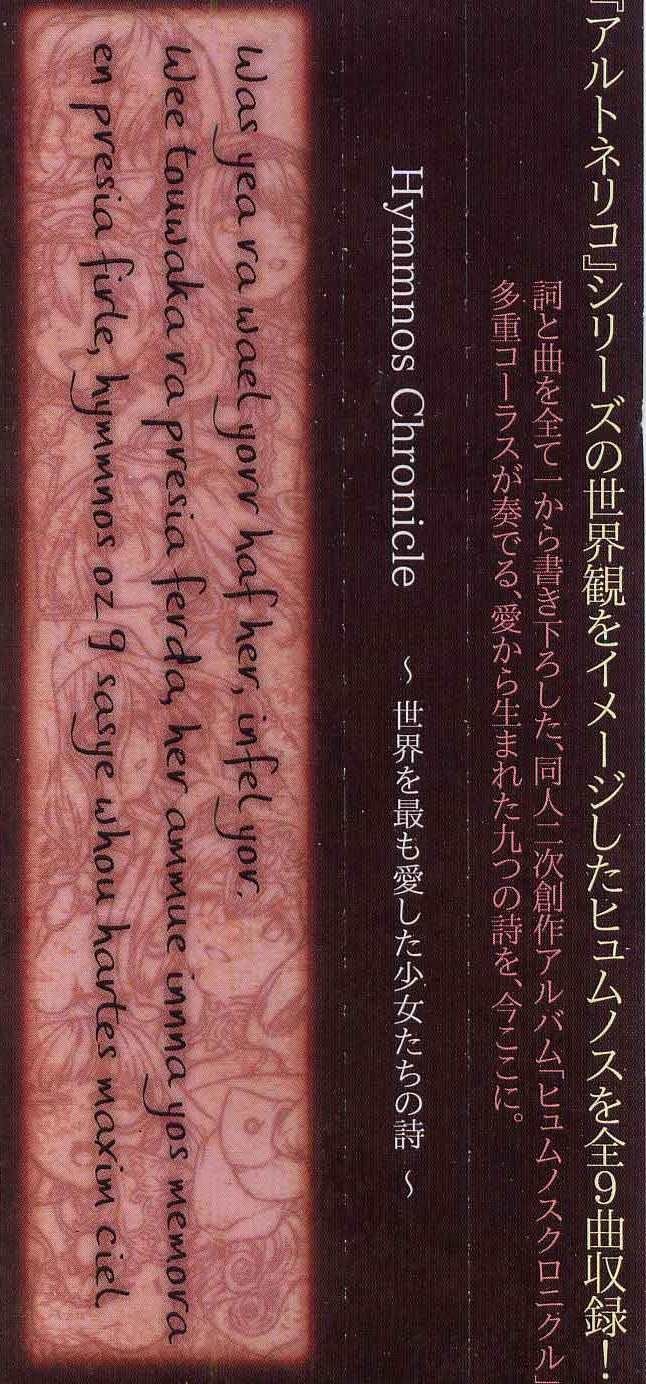 『アルトネリコ』シリーズの世界観をイメージしたヒュムノスを全9曲収録！
詞と曲を全て一から書き下ろした、同人二次創作アルバム「ヒュムノスクロニクル」
多重コーラスが奏でる、愛から生まれた九つの詩を、今ここに。
Hymmnos Chronicle ～ 世界を最も愛した少女たちの詩 ～
Was yea ra wael yorr haf her, infel yor.
Wee touwaka ra presia ferda, her ammue innna yos memora
en presia firle, hymmnos oz 9 sasye whou hartes maxim ciel